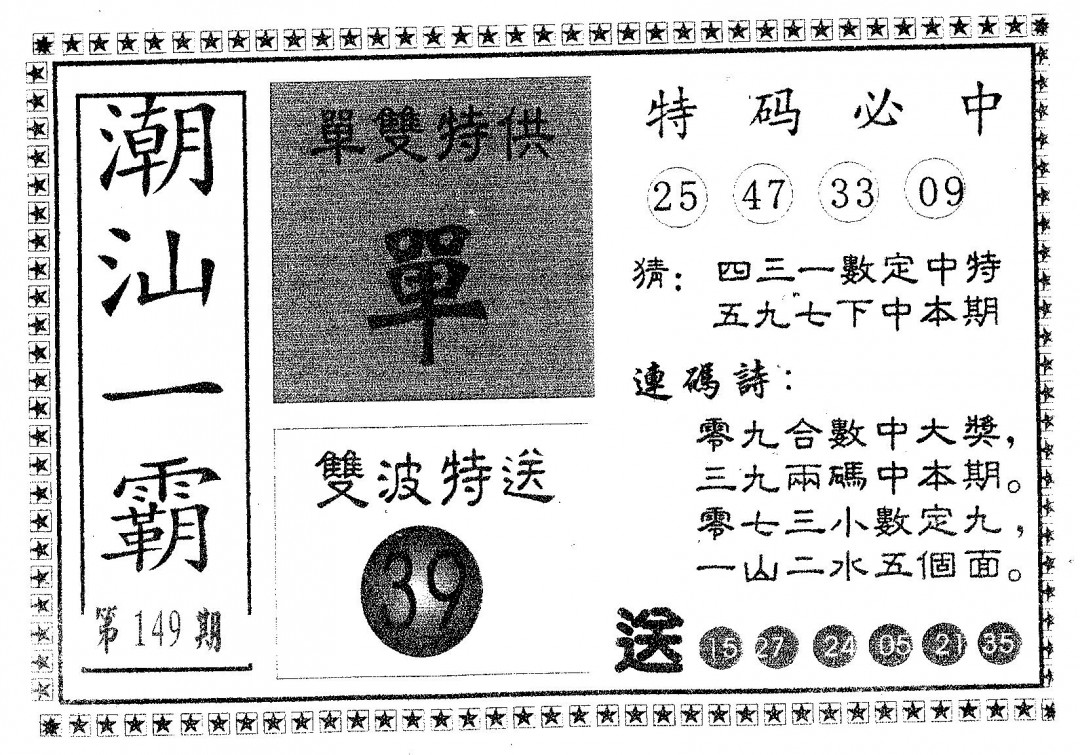 潮汕一霸
第149期
單雙特供
單
雙波特送
39
特码必中
25 47 33 09
猜：四三一數定中特
五九七下中本期
連碼詩：
零九合數中大獎，
三九兩碼中本期。
零七三小數定九，
一山二水五個面。
送 15 27 24 05 21 35